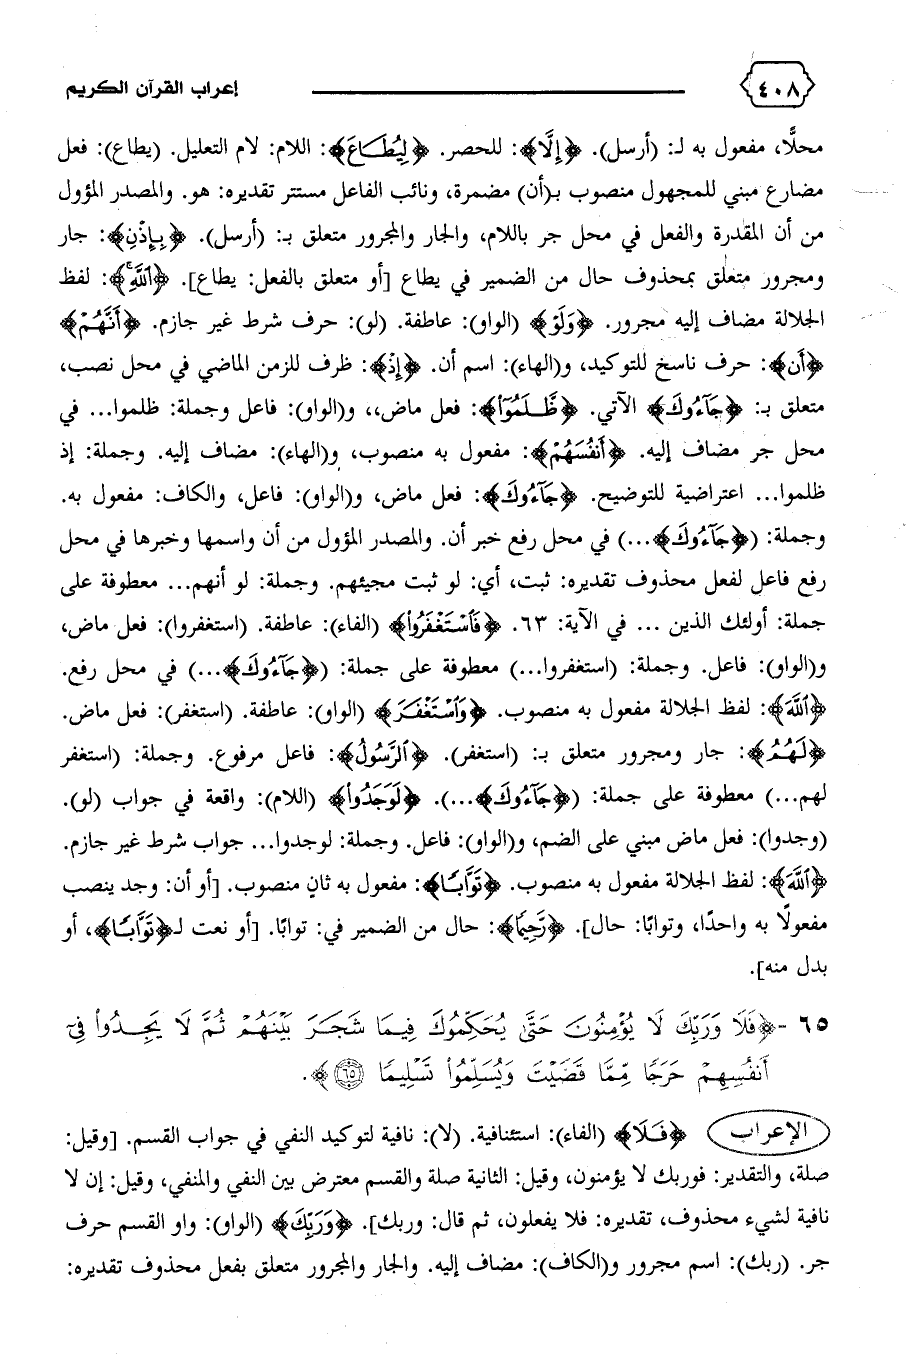 ٤٠٨ إعراب القرآن الكريم
محلًّا، مفعول به لـ: (أرسل). ﴿إِلَّا﴾: للحصر. ﴿لِيُطَاعَ﴾: اللام: لام التعليل. (يطاع): فعل
مضارع مبني للمجهول منصوب بـ(أن) مضمرة، ونائب الفاعل مستتر تقديره: هو. والمصدر المؤول
من أن المقدرة والفعل في محل جر باللام، والجار والمجرور متعلق بـ: (أرسل). ﴿بِإِذْنِ﴾: جار
ومجرور متعلق بمحذوف حال من الضمير في يطاع [أو متعلق بالفعل: يطاع]. ﴿ٱللَّهِۚ﴾: لفظ
الجلالة مضاف إليه مجرور. ﴿وَلَوْ﴾ (الواو): عاطفة. (لو): حرف شرط غير جازم. ﴿أَنَّهُمْ﴾
﴿أَن﴾: حرف ناسخ للتوكيد، و(الهاء): اسم أن. ﴿إِذ﴾: ظرف للزمن الماضي في محل نصب،
متعلق بـ: ﴿جَآءُوكَ﴾ الآتي. ﴿ظَّلَمُوٓا۟﴾: فعل ماض،، و(الواو): فاعل وجملة: ظلموا... في
محل جر مضاف إليه. ﴿أَنفُسَهُمْ﴾: مفعول به منصوب، و(الهاء): مضاف إليه. وجملة: إذ
ظلموا... اعتراضية للتوضيح. ﴿جَآءُوكَ﴾: فعل ماض، و(الواو): فاعل، والكاف: مفعول به.
وجملة: (﴿جَآءُوكَ﴾...) في محل رفع خبر أن. والمصدر المؤول من أن واسمها وخبرها في محل
رفع فاعل لفعل محذوف تقديره: ثبت، أي: لو ثبت مجيئهم. وجملة: لو أنهم... معطوفة على
جملة: أولئك الذين ... في الآية: ٦٣. ﴿فَٱسْتَغْفَرُوا۟﴾ (الفاء): عاطفة. (استغفروا): فعل ماض،
و(الواو): فاعل. وجملة: (استغفروا...) معطوفة على جملة: (﴿جَآءُوكَ﴾...) في محل رفع.
﴿ٱللَّهَ﴾: لفظ الجلالة مفعول به منصوب. ﴿وَٱسْتَغْفَرَ﴾ (الواو): عاطفة. (استغفر): فعل ماض.
﴿لَهُمُ﴾: جار ومجرور متعلق بـ: (استغفر). ﴿ٱلرَّسُولُ﴾: فاعل مرفوع. وجملة: (استغفر
لهم...) معطوفة على جملة: (﴿جَآءُوكَ﴾...). ﴿لَوَجَدُوا۟﴾ (اللام): واقعة في جواب (لو).
(وجدوا): فعل ماض مبني على الضم، و(الواو): فاعل. وجملة: لوجدوا... جواب شرط غير جازم.
﴿ٱللَّهَ﴾: لفظ الجلالة مفعول به منصوب. ﴿تَوَّابًا﴾: مفعول به ثانٍ منصوب. [أو أن: وجد ينصب
مفعولًا به واحدًا، وتوابًا: حال]. ﴿رَّحِيمًا﴾: حال من الضمير في: توابًا. [أو نعت لـ﴿تَوَّابًا﴾، أو
بدل منه].
٦٥ -﴿فَلَا وَرَبِّكَ لَا يُؤْمِنُونَ حَتَّىٰ يُحَكِّمُوكَ فِيمَا شَجَرَ بَيْنَهُمْ ثُمَّ لَا يَجِدُوا۟ فِىٓ
أَنفُسِهِمْ حَرَجًا مِّمَّا قَضَيْتَ وَيُسَلِّمُوا۟ تَسْلِيمًا ۝٦٥﴾.
الإعراب ﴿فَلَا﴾ (الفاء): استئنافية. (لا): نافية لتوكيد النفي في جواب القسم. [وقيل:
صلة، والتقدير: فوربك لا يؤمنون، وقيل: الثانية صلة والقسم معترض بين النفي والمنفي، وقيل: إن لا
نافية لشيء محذوف، تقديره: فلا يفعلون، ثم قال: وربك]. ﴿وَرَبِّكَ﴾ (الواو): واو القسم حرف
جر. (ربك): اسم مجرور و(الكاف): مضاف إليه. والجار والمجرور متعلق بفعل محذوف تقديره: